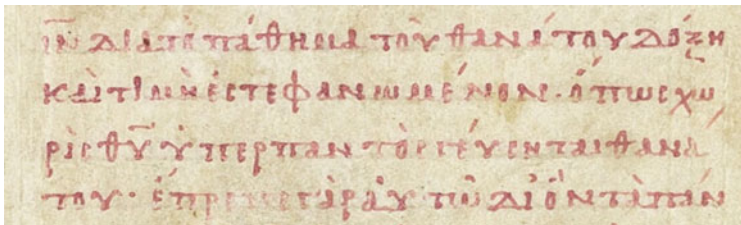 ι̅ν̅ διὰ τὸ πάθημα τοῦ θανάτου δόξη
καὶ τιμῆ ἐστεφανωμένον· ὅπως χω
ρὶς θ̅υ̅ ὑπὲρ παντὸς γεύσηται θανά
του· ἔπρεπε γὰρ αὐτῶ δι ὃν τὰ πάν